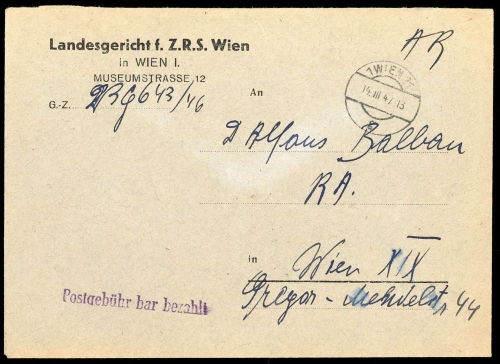 Landesgericht f. Z.R.S. Wien
in WIEN I.
MUSEUMSTRASSE 12
AR
1 WIEN
14. III 47. 13
G.-Z. 643/46
An
D Alfons Balban
RA.
in Wien XIX
Gregor - Mendelst 44
Postgebühr bar bezahlt